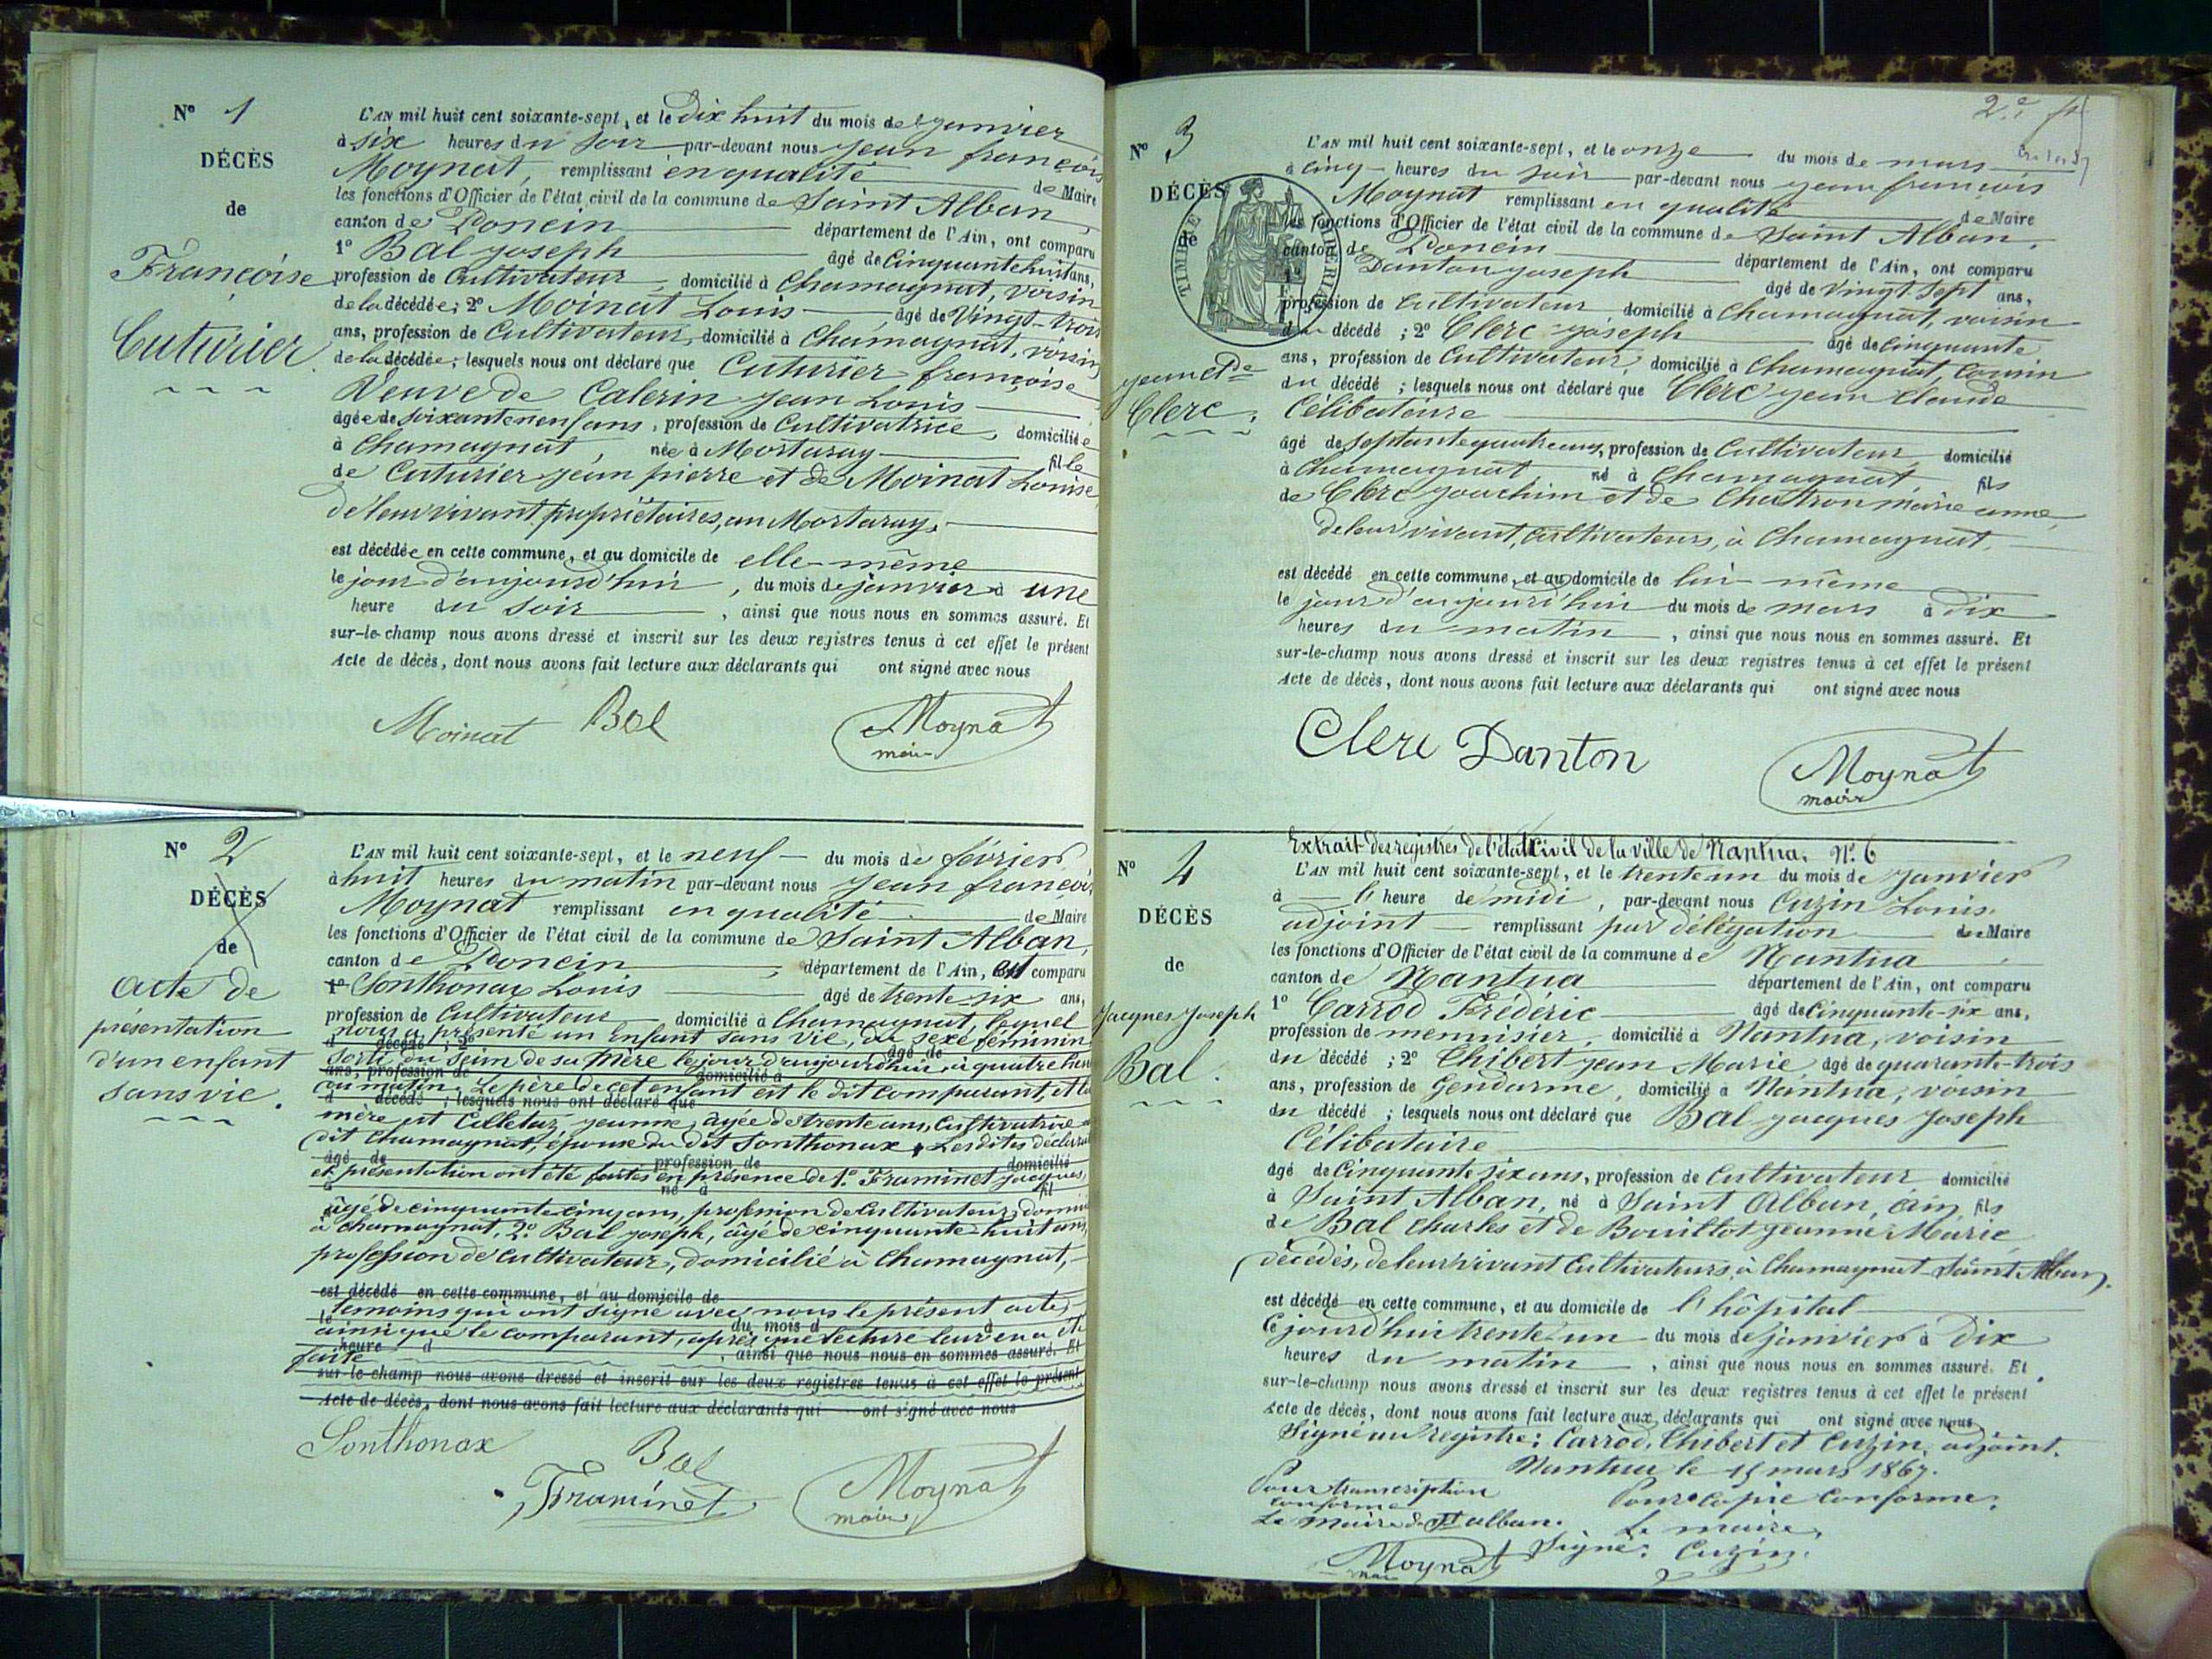 N° 1
DÉCÈS
de
Françoise
Cuturier.
L'AN mil huit cent soixante-sept, et le Dix huit du mois de janvier
à six heures du soir par-devant nous jean françois
Moynat, remplissant en qualité de Maire
les fonctions d'Officier de l'état civil de la commune de Saint Alban,
canton de Poncin département de l'Ain, ont comparu
1° Bal joseph âgé de Cinquante huit ans,
profession de Cultivateur, domicilié à Chamagnat, voisin
de la décédée; 2° Moinat Louis âgé de Vingt-trois
ans, profession de Cultivateur, domicilié à Chamagnat, voisin
de la décédée; lesquels nous ont déclaré que Cuturier françoise
Veuve de Calerin jean Louis
âgée de soixante neuf ans, profession de Cultivatrice, domiciliée
à Chamagnat, née à Mortaray fille
de Cuturier jean pierre et de Moinat Louise
de leur vivant propriétaires, au Mortaray.
est décédée en cette commune, et au domicile de elle-même
le jour d'aujourd'hui, du mois de janvier à une
heure du soir, ainsi que nous nous en sommes assuré. Et
sur-le-champ nous avons dressé et inscrit sur les deux registres tenus à cet effet le présent
Acte de décès, dont nous avons fait lecture aux déclarants qui ont signé avec nous
Moinat Bal Moynat
maire
N° 2
DÉCÈS
de
acte de
présentation
d'un enfant
sans vie.
L'AN mil huit cent soixante-sept, et le neuf du mois de février
à huit heures du matin par-devant nous jean françois
Moynat remplissant en qualité de Maire
les fonctions d'Officier de l'état civil de la commune de Saint Alban,
canton de Poncin, département de l'Ain, est comparu
1° Sonthonax Louis âgé de trente-six ans,
profession de Cultivateur domicilié à Chamagnat, lequel
nous a présenté un Enfant sans vie, du sexe féminin
sorti du seim de sa mère le jour d'aujourd'hui à quatre heures
du matin. Le père de cet enfant est le dit comparant, et la
mère est Culletaz jeanne, agée de trente ans, Cultivatrice au
dit Chamagnat, épouse du dit Sonthonax. Lesdites déclaration
et présentation ont été faites en présence de 1° Framinet Jacques,
âgé de cinquante cinq ans, profession de Cultivateur, domicilié
à chamagnat, 2° Bal joseph, âgé de cinquante-huit ans,
profession de Cultivateur, domicilié à Chamagnat,
est décédé en cette commune, et au domicile de
temoins qui ont signé avec nous le présent acte
ainsi que le comparant, après que lecture leur en a été
faite
heure d , ainsi que nous nous en sommes assuré. Et
sur-le-champ nous avons dressé et inscrit sur les deux registres tenus à cet effet le présent
Acte de décès, dont nous avons fait lecture aux déclarants qui ont signé avec nous
Sonthonax Bal
Framinet Moynat
maire
2e
N° 3
DÉCÈS
de
jean Cde
Clerc.
TIMBRE
L'AN mil huit cent soixante-sept, et le onze du mois de mars
à cinq heures du soir par-devant nous jean françois
Moynat remplissant en qualité de Maire
les fonctions d'Officier de l'état civil de la commune de Saint Alban,
canton de Poncin département de l'Ain, ont comparu
1° Danton joseph âgé de vingt sept ans,
profession de Cultivateur domicilié à Chamagnat, voisin
du décédé; 2° Clerc joseph âgé de Cinquante
ans, profession de Cultivateur, domicilié à Chamagnat, Cousin
du décédé; lesquels nous ont déclaré que Clerc jean Claude
Célibataire
âgé de septante quatre ans, profession de Cultivateur domicilié
à Chamagnat né à Chamagnat, fils
de Clerc joachim et de Chatron marie anne,
de leur vivant, Cultivateurs, à Chamagnat.
est décédé en cette commune, et au domicile de lui même
le jour d'aujourd'hui du mois de mars à Dix
heures du matin, ainsi que nous nous en sommes assuré. Et
sur-le-champ nous avons dressé et inscrit sur les deux registres tenus à cet effet le présent
Acte de décès, dont nous avons fait lecture aux déclarants qui ont signé avec nous
Clerc Danton Moynat
maire
Extrait des registres de l'état Civil de la ville de Nantua. N° 6
N° 4
DÉCÈS
de
Jacques Joseph
Bal.
L'AN mil huit cent soixante-sept, et le trente un du mois de janvier
à l'heure de midi, par-devant nous Cuzin Louis,
adjoint remplissant par délégation de Maire
les fonctions d'Officier de l'état civil de la commune de Nantua
canton de Nantua département de l'Ain, ont comparu
1° Carrod Frédéric âgé de Cinquante-six ans,
profession de menuisier, domicilié à Nantua, voisin
du décédé; 2° Chibert jean Marie, âgé de quarante-trois
ans, profession de Gendarme, domicilié à Nantua, voisin
du décédé; lesquels nous ont déclaré que Bal jacques Joseph
Célibataire
âgé de Cinquante six ans, profession de Cultivateur domicilié
à Saint Alban, né à Saint Alban, ain, fils
de Bal Charles et de Bouillot jeanne Marie
décédés, de leur vivant Cultivateurs, à Chamagnat Saint Alban.
est décédé en cette commune, et au domicile de l'hôpital
Ce jourd'hui trente-un du mois de janvier à Dix
heures du matin, ainsi que nous nous en sommes assuré. Et
sur-le-champ nous avons dressé et inscrit sur les deux registres tenus à cet effet le présent
Acte de décès, dont nous avons fait lecture aux déclarants qui ont signé avec nous
Signé au registre: Carrod, Chibert et Cuzin, adjoint.
Nantua le 15 mars 1867.
Pour transcription
conforme
Le maire de St alban.
Moynat
Pour copie Conforme,
Le maire,
Signé: Cuzin.